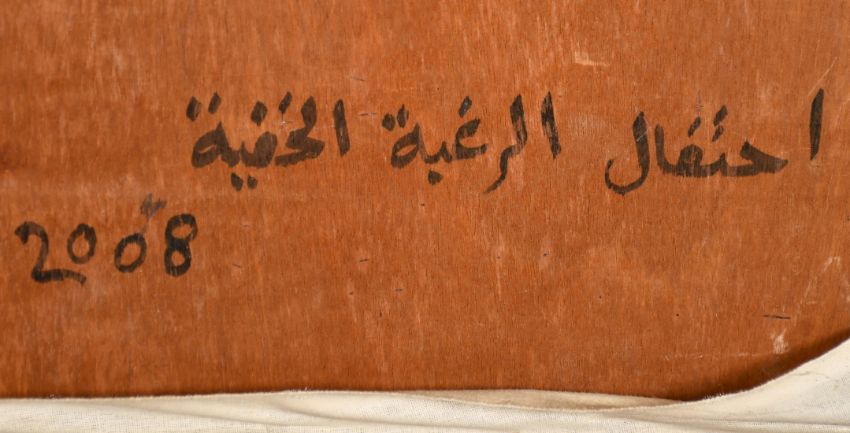 احتفال الرغبة الخفية
2008